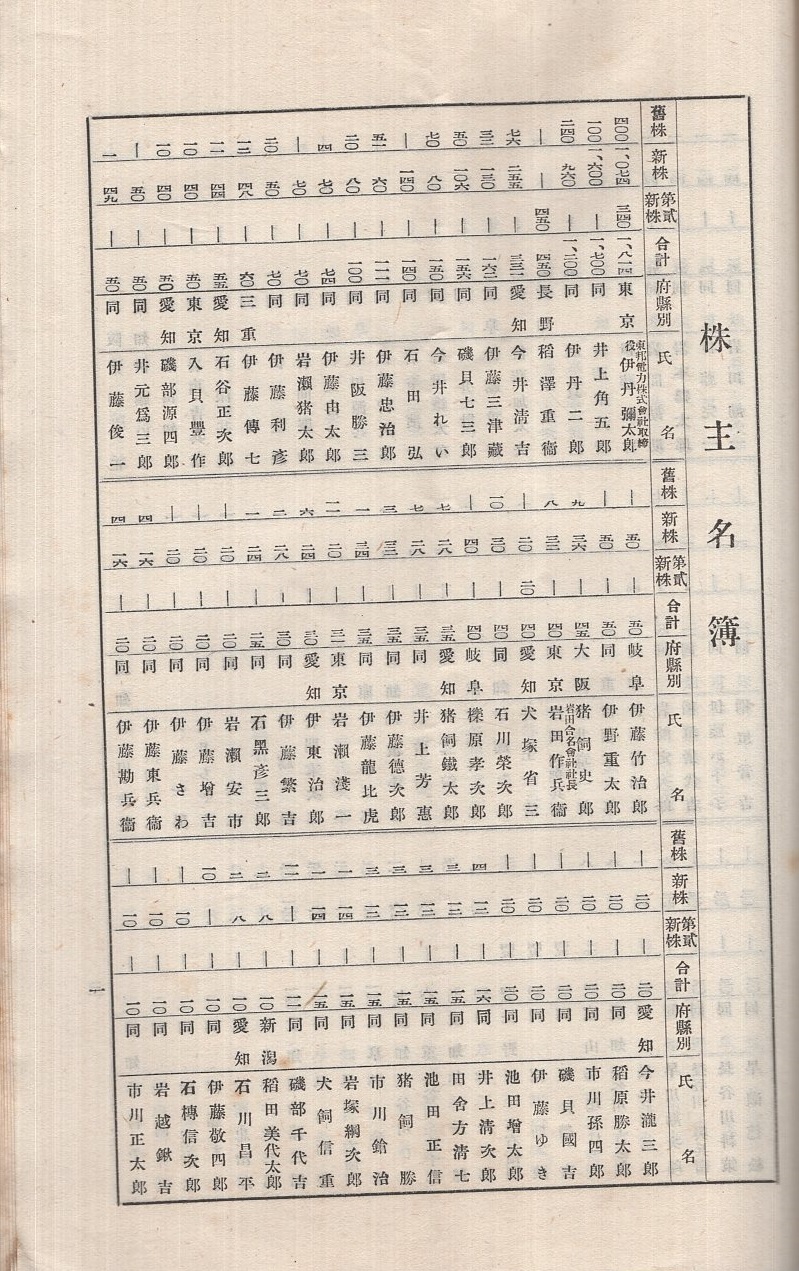 株主名簿
舊株 新株 第貳新株 合計 府縣別 氏名
四〇〇 一、〇七四 三四〇 一、八一四 東京 東邦電力株式會社取締役 伊丹彌太郎
一〇〇 一、六〇〇 ― 一、七〇〇 同 井上角五郎
二四〇 九六〇 ― 一、二〇〇 同 伊丹二郎
― ― 四五〇 四五〇 長野 稻澤重衞
七六 二五五 ― 三三一 愛知 今井清吉
三二 一三〇 ― 一六二 同 伊藤三津藏
五〇 一〇六 ― 一五六 同 磯貝七三郎
七〇 八〇 ― 一五〇 同 今井れい
― 一四〇 ― 一四〇 同 石田弘
五一 六〇 ― 一一一 同 伊藤忠治郎
二〇 八〇 ― 一〇〇 同 井阪勝三
四 七〇 ― 七四 同 伊藤由太郎
― 七〇 ― 七〇 同 岩瀬猪太郎
二〇 五〇 ― 七〇 同 伊藤利彥
一二 四八 ― 六〇 三重 伊藤傳七
一一 四四 ― 五五 愛知 石谷正次郎
一〇 四〇 ― 五〇 東京 入貝豐作
一〇 四〇 ― 五〇 愛知 磯部源四郎
― 五〇 ― 五〇 同 井元爲三郎
一 四九 ― 五〇 同 伊藤俊一
舊株 新株 第貳新株 合計 府縣別 氏名
― 五〇 ― 五〇 岐阜 伊藤竹治郎
― 五〇 ― 五〇 同 伊野重太郎
九 三六 ― 四五 大阪 猪飼史郎
八 三二 ― 四〇 東京 岩田合名會社社長 岩田作兵衞
― 二〇 二〇 四〇 愛知 犬塚省三
一〇 三〇 ― 四〇 同 石川榮次郎
― 四〇 ― 四〇 岐阜 櫟原孝次郎
七 二八 ― 三五 愛知 猪飼鐵太郎
七 二八 ― 三五 同 井上芳惠
三 三二 ― 三五 同 伊藤德次郎
一 三四 ― 三五 同 伊藤龍比虎
一一 二〇 ― 三一 東京 岩瀬淺一
六 二四 ― 三〇 愛知 伊東治郎
二 二八 ― 三〇 同 伊藤繁吉
一 二四 ― 二五 同 石黑彥三郎
― 二〇 ― 二〇 同 岩瀬安市
― 二〇 ― 二〇 同 伊藤增吉
― 二〇 ― 二〇 同 伊藤さわ
四 一六 ― 二〇 同 伊藤東兵衞
四 一六 ― 二〇 同 伊藤勘兵衞
舊株 新株 第貳新株 合計 府縣別 氏名
― 二〇 ― 二〇 愛知 今井瀧三郎
― 二〇 ― 二〇 同 稻原勝太郎
― 二〇 ― 二〇 同 市川孫四郎
― 二〇 ― 二〇 同 磯貝國吉
― 二〇 ― 二〇 同 伊藤ゆき
― 二〇 ― 二〇 同 池田增太郎
四 一二 ― 一六 同 井上清次郎
三 一二 ― 一五 同 田舍方清七
三 一二 ― 一五 同 池田正信
三 一二 ― 一五 同 猪飼勝
三 一二 ― 一五 同 市川鎗治
一 一四 ― 一五 同 岩塚綱次郎
一 一四 ― 一五 同 犬飼信重
一二 ― ― 一二 同 磯部千代吉
二 八 ― 一〇 新潟 稻田美代太郎
二 八 ― 一〇 愛知 石川昌平
一〇 ― ― 一〇 同 伊藤敬四郎
― 一〇 ― 一〇 同 石槫信次郎
― 一〇 ― 一〇 同 岩越鍬吉
― 一〇 ― 一〇 同 市川正太郎
一